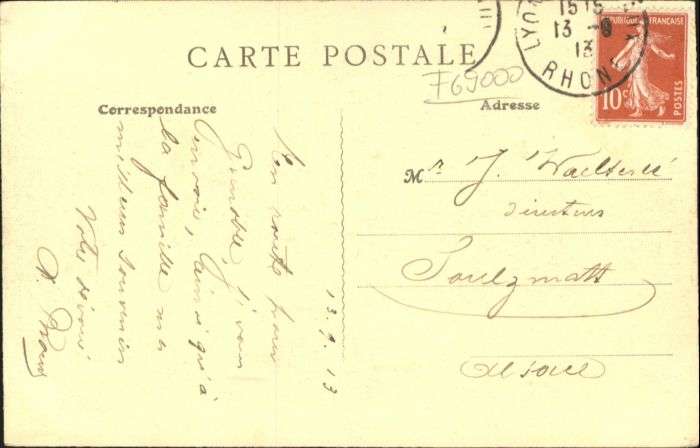 CARTE POSTALE
F69000
Correspondance
Adresse
LYON
1515
13 -9
13
RHONE
RÉPUBLIQUE FRANÇAISE
10c
POSTES
13.9.13
En route pour
Grenoble j'vous
envoie, ainsi qu'à
la famille mes
meilleurs souvenirs
Votre dévoué
Mr J.
Directeur
Soulzmatt
Alsace